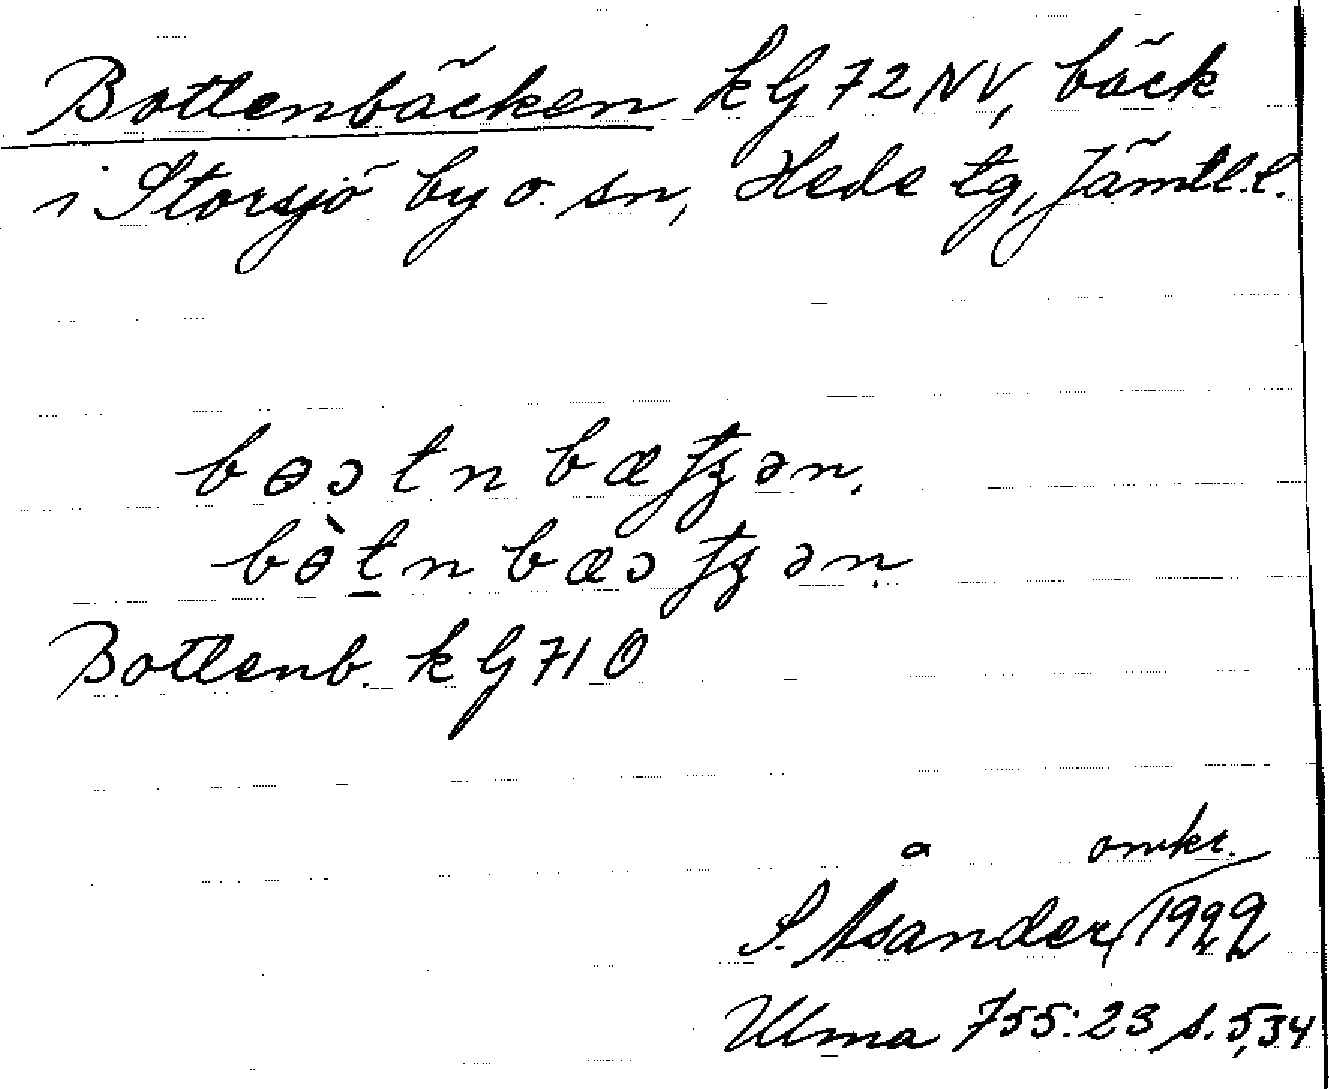 Bottenbäcken k G 72 NV, bäck
i Storsjö by o. sn, Hede tg, Jämtl. l.
bɵɔtn bæʈʐən.
bɵ̀t̲n bæɔʈʐən
Bottenb. k G 71 O
omkr.
S. Åsander, 1922
Ulma 755:23 s. 5,34